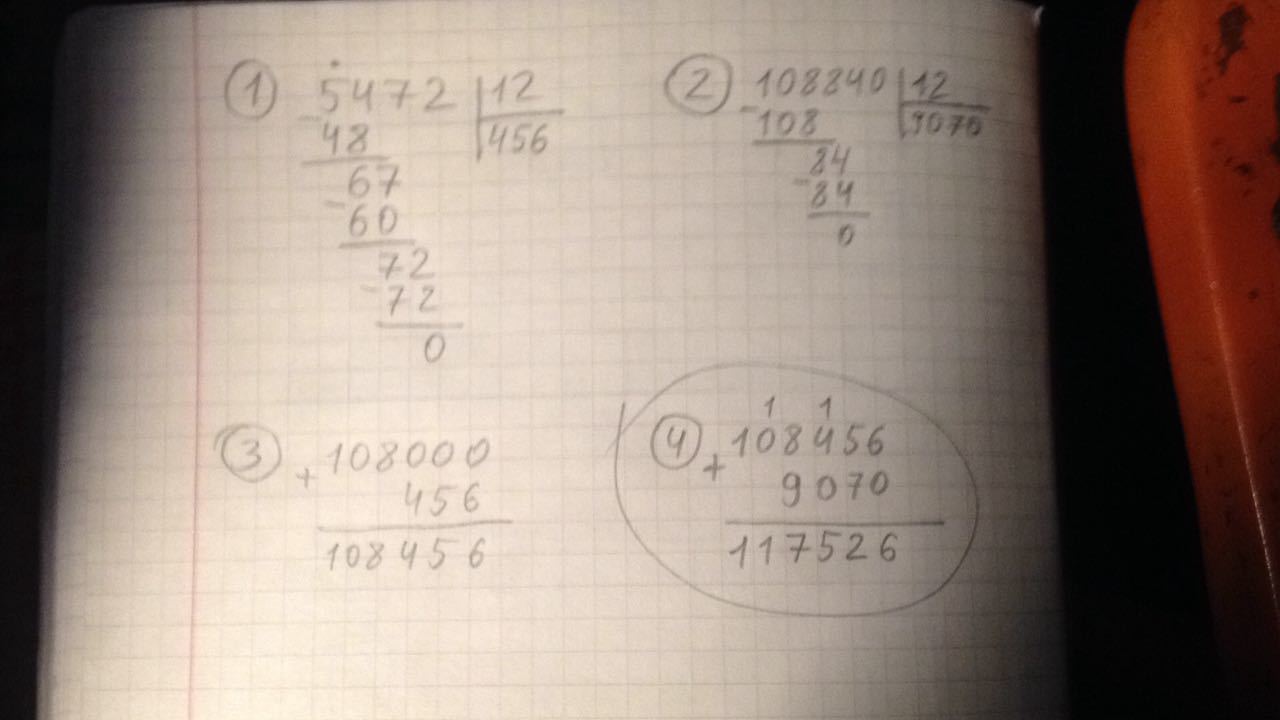 ① 5472 | 12
- 48 | 456
67
- 60
72
- 72
0
② 108840 | 12
- 108 | 9070
84
- 84
0
③ + 108000
456
108456
1 1
④ + 108456
9070
117526